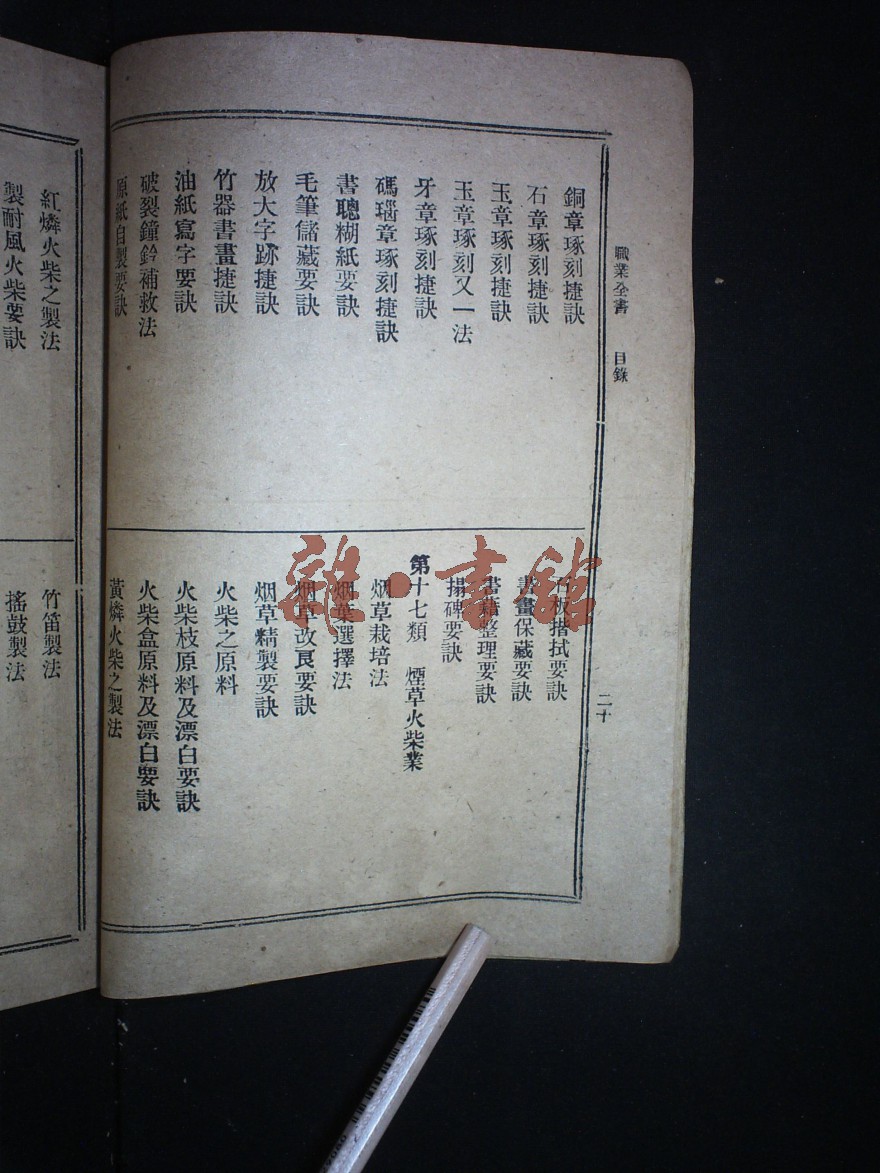 職業全書　目錄
二十
銅章琢刻捷訣
石章琢刻捷訣
玉章琢刻捷訣
玉章琢刻又一法
牙章琢刻捷訣
碼瑙章琢刻捷訣
書聰糊紙要訣
毛筆儲藏要訣
放大字跡捷訣
竹器書畫捷訣
油紙寫字要訣
破裂鐘鈴補救法
原紙自製要訣
石板揩拭要訣
書畫保藏要訣
書籍整理要訣
搨碑要訣
第十七類　煙草火柴業
烟草栽培法
烟葉選擇法
烟草改良要訣
烟草精製要訣
火柴之原料
火柴枝原料及漂白要訣
火柴盒原料及漂白要訣
黃燐火柴之製法
紅燐火柴之製法
製耐風火柴要訣
竹笛製法
搖鼓製法
雜·書館